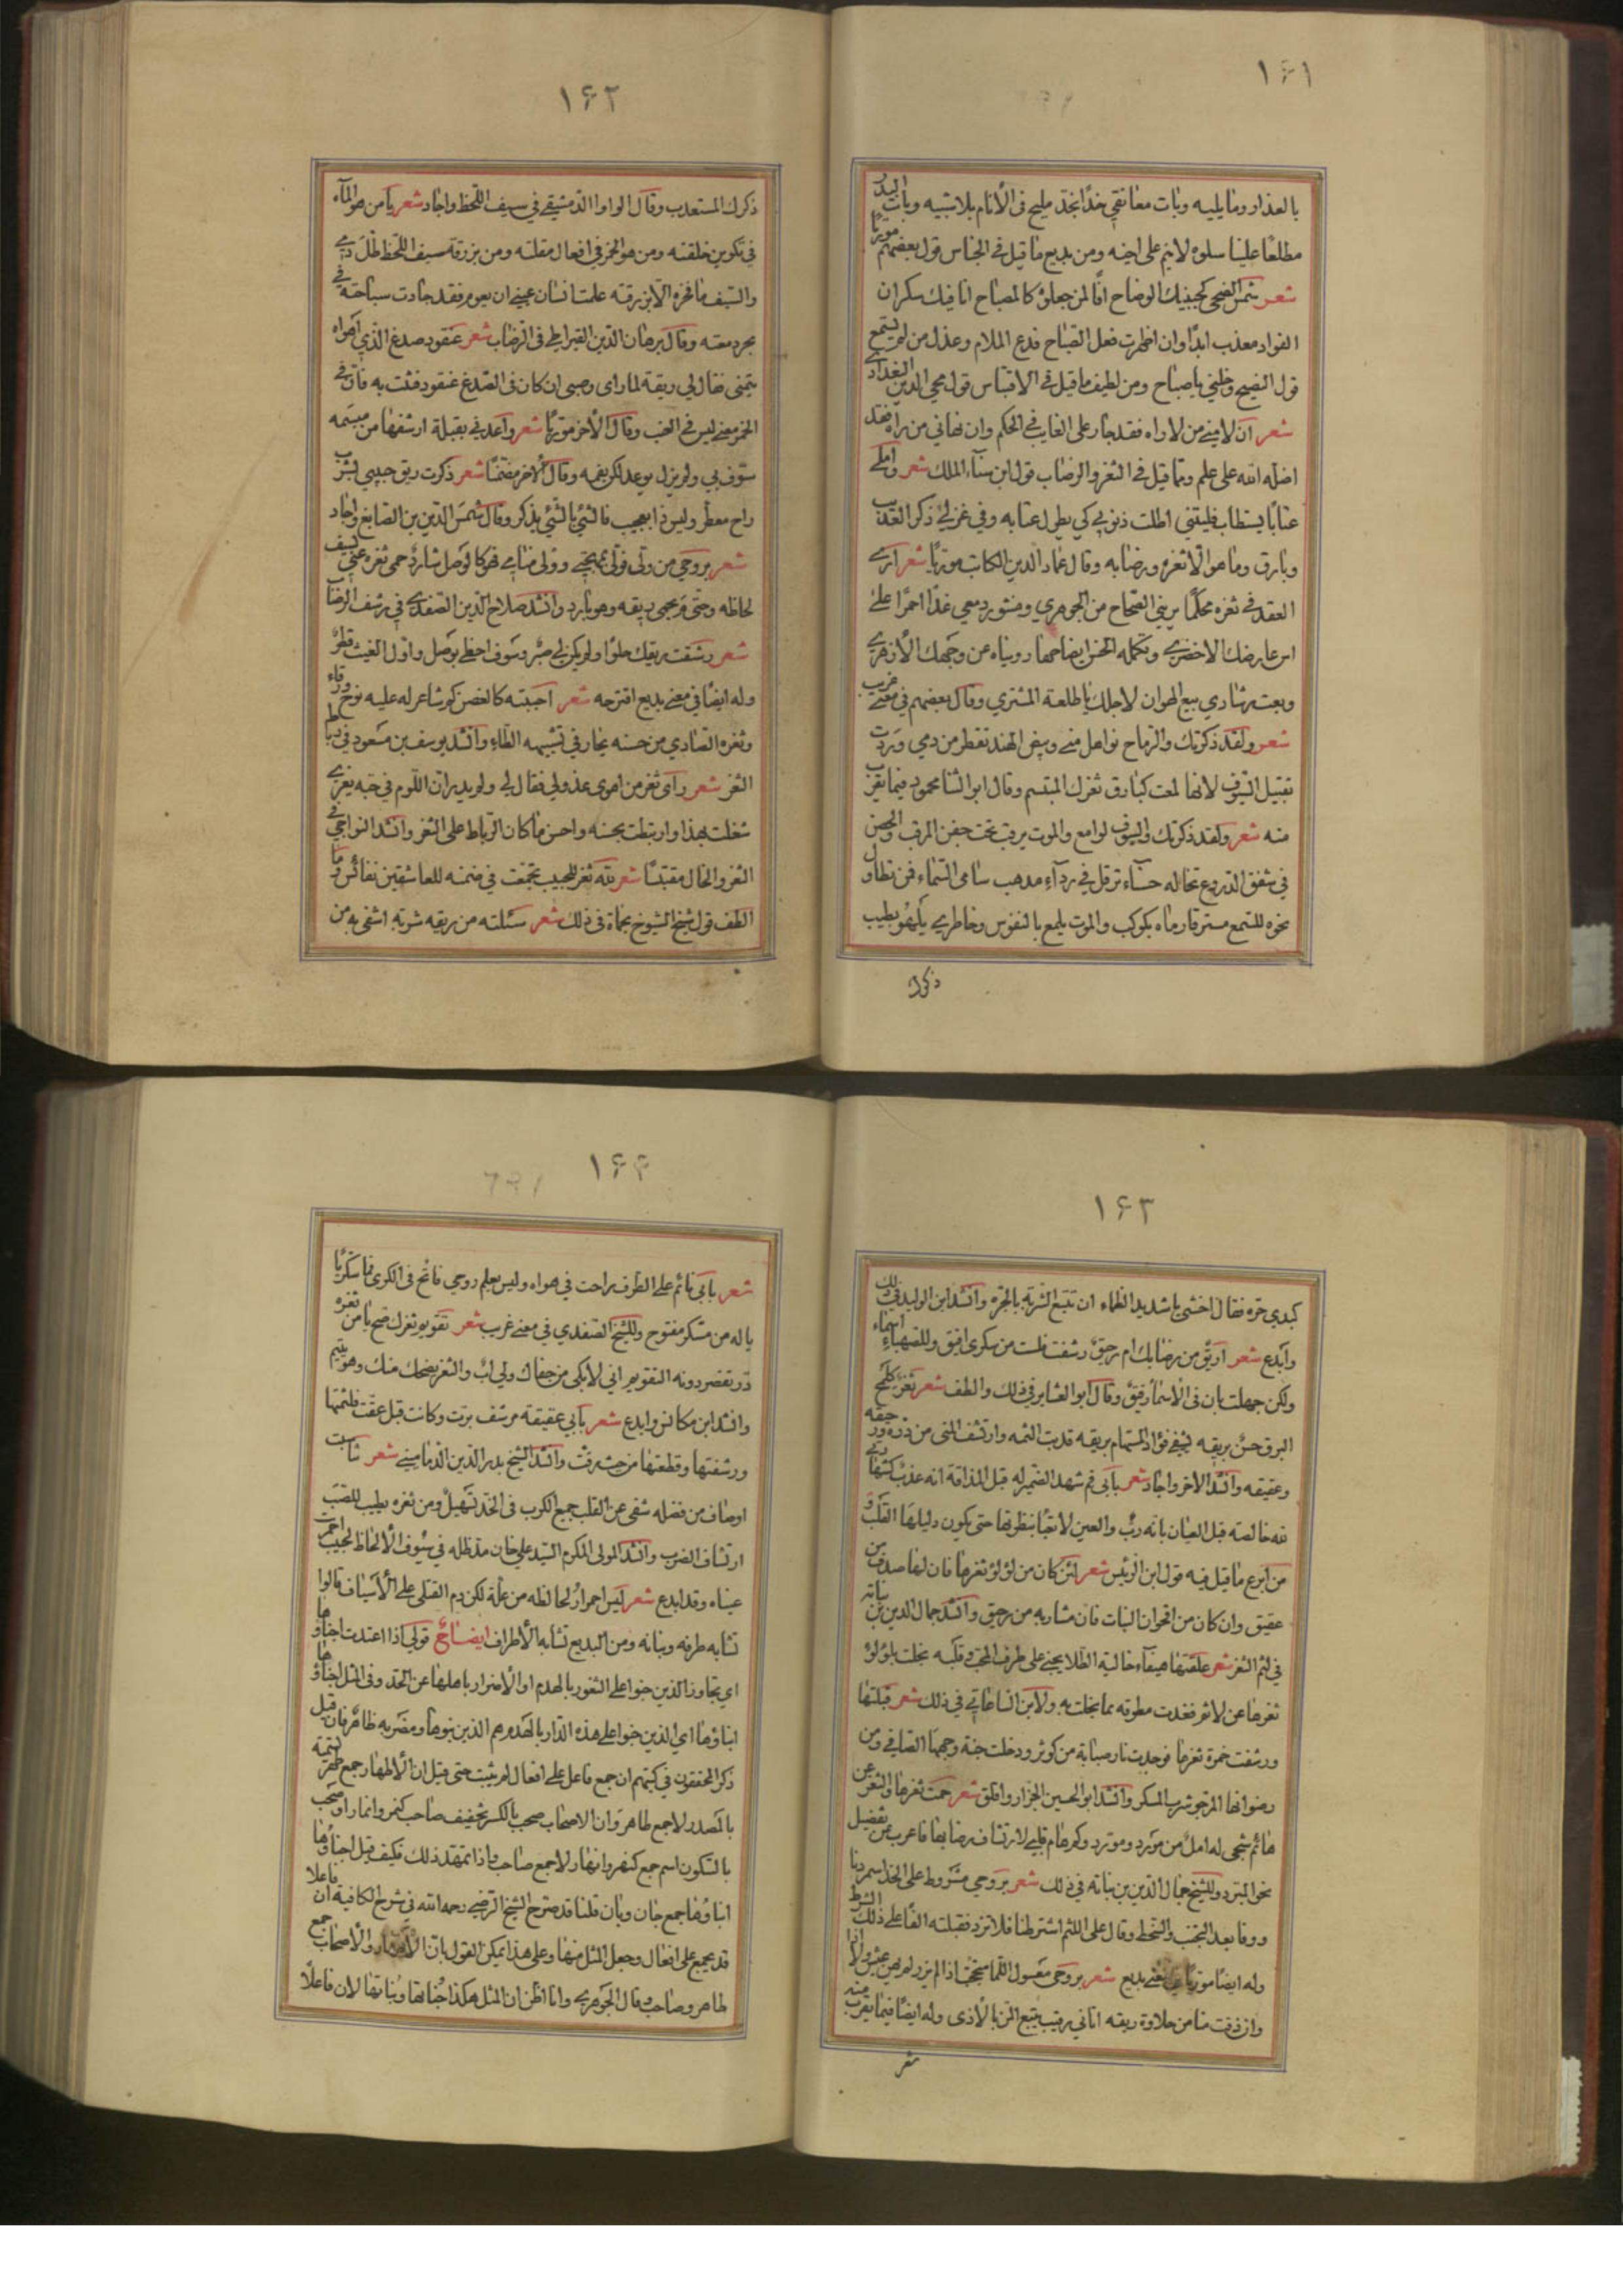 ١٦١
بالعذار وما يليه وبات معانقي خدًا بخد مليح في الأنام بلا شبيه وبات البدر
مطلعًا علينا سلوه لا ينم على اخيه ومن بديع ما قيل في الجناس قول بعضهم موريًا
شعر شمس الضحى كجبينك الوضاح انّا لمن جعلوك كالمصباح انا فيك سكران
الفواد معذب ابدًا وان اظهرت فعل الصاح فدع الملام وعذل من لم يستمع
قول النصيح وخلني يا صاح ومن لطيف ما قيل في الاقتباس قول محي الدين البغدادي
شعر ان لامني من لا راه فقد جار على الغايب في الحكم وان نهاني من راه فقد
اضله الله على علم ومما قيل في الثغر والرضاب قول ابن سناء الملك شعر واملي
عتابًا يستطاب فليتني اطلت ذنوبي كي يطول عتابه وفي غزلي ذكر العذيب
وبارق وما هو الّا ثغره ورضابه وقال عماد الدين الكاتب موريًا شعر ارى
العقد في ثغره محكمًا يريني الصحاح من الجوهري ومنثور دمعي غدا احمرًا على
اس عارضك الاخضري وتكمله الحسن ايضاحها رويناه عن وجهك الأزهري
وبعت رشادي ببيع الهوان لاجلك يا طلعة المشتري وقال بعضهم في معنى غريب
شعر ولقد ذكرتك والرماح نواهل مني وبيض الهند تقطر من دمي وددت
تقبيل السيوف لانها لمعت كبارق ثغرك المبتسم وقال ابو الثنا محمود فيما يقرب
منه شعر ولقد ذكرتك والسيوف لوامع والموت يرقب تحت حصن المرقب والحصن
في شفق الدروع تخاله حسناء ترفل في رداء مذهب سامي السماء فمن تطاول
نحوه للسمع مسترقا رماه بكوكب والموت يلمع بالنفوس وخاطري يلهو بطيب
ذكرك
١٦٢
ذكرك المستعذب وقال الواوا الدمشقي في سيف اللحظ واجاد شعر يا من هو الماء
في تكوين خلقته ومن هو الخمر في افعال مقلته ومن بزرقة سيف اللحظ طلّ دمي
والسيف ما فخره الّا بزرقته علمت انسان عيني ان يعوم فقد جادت سباحته في
بحر دمعته وقال برهان الدين القيراطي في الرضاب شعر عنقود صدغ الذي اهواه
يتمنى فقال لي ريقة لما راى وصبي ان كان في الصدغ عنقود فتنت به فان في
الخمر معنى ليس في العنب وقال الأخر موريًا شعر واعدني بقبلة ارشفها من مبسمه
سوّف بي ولم يزل يوعد لكن بفمه وقال الأخر مضمنًا شعر ذكرت ريق حبيبي بشرب
راح معطر وليس ذا بعجيب فالشئ بالشئ يذكر وقال شمس الدين بن الصايغ واجاد
شعر بروحي من ولّى فولّى بمهجتي وولى منامي فهو كالوصل شارد حمى ثغره عني بسيف
لحاظه وحتى مَ يحمى ريقه وهو بارد وانشد صلاح الدين الصفدي في رشف الرضاب
شعر رشفت ريقك حلوًا ولم يكن لي صبر وسوف احظى بوصل واوّل الغيث قطر
وله ايضًا في معنى بديع اقترحه شعر احببته كالغصن كم شاعر له عليه نوح ورقاء
وثغره الصادي من حسنه يحار في تشبيهه الطاء وانشد يوسف بن مسعود في رباط
الثغر شعر رأى ثغر من اهوى عذولي فقال لي ولم يدر ان اللوم في حبه يغري
شغلت بهذا وارتبطت بحسنه واحسن ما كان الرباط على الثغر وانشد النواجي في
الثغر والخال مقتبسًا شعر لله ثغر للحبيب تجمعت في ضمنه للعاشقين نفائس وما
الطف قول شيخ الشيوخ بحماة في ذلك شعر سئلته من ريقه شربة اشفي به من
١٦٣
كبدي حرّه فقال اخشى يا شديد الظماء ان تتبع الشربة بالجرة وانشد ابن الوليد في ذلك
وابدع شعر اريق من رضابك ام رحيق رشفت فلست من سكري افيق وللصهباء اسماء
ولكن جهلت بان في الاسماء ريق وقال ابو العشاير في ذلك والطف شعر ثغر كلمح
البرق حسن بريقه يشفي فؤاد المستهام بريقه قد بت الثمه وارتشف المنى من دره ورحيقه
وعقيقه وانشد الأخر واجاد شعر بأبي فم شهد الضمير له قبل المذاقة انه عذب كشهادتي
لله خالصه قبل العيان بانه ربّ والعين لا تعبأ بنظرتها حتى يكون دليلها القلب و
من ابدع ما قيل فيه قول ابن الرئيس شعر لئن كان من لؤلؤ ثغرها فان لها صدفا من
عقيق وان كان من اقحوان النبات فان مشاربه من رحيق وانشد جمال الدين بن نباته
في لثم الثغر شعر علقتها هيفاء حالية الطلا يجني على طرف المحب وقلبه بخلت بلؤلؤ
ثغرها عن لاثم فغدت مطوقه بما بخلت به ولابن الساعاتي في ذلك شعر قبلتها
ورشفت خمرة ثغرها فوجدت نار صبابة من كوثر ودخلت جنة وجهها الصافي ومن
رضوانها المرجو شرب المسكر وانشد ابو الحسين الجزار وافلق شعر حمت ثغرها والثغر عن
هائم شجى له امل من مورد ومورد وكم هام قلبي لارتشاف رضابها فاعرب عن تفضيل
نحو المبرد وللشيخ جمال الدين بن نباته في ذلك شعر بروحي مشروط على الخد اسمر دنا
ووفا بعد التجنب والسخط وقال على اللثم اشترطنا فلا تزد فقبلته الفًا على ذلك الشرط
وله ايضًا موريًا في معنى بديع شعر بروحي معسول اللما متجنب اذا لم يزر لم يهن عيش ولا اذا
وان ذقت منا من حلاوة ريقه اتاني رقيب يتبع المن بالأذى وله ايضًا فيما يقرب منه
شعر
١٦٤
شعر بأبي نائم على الطرف راحت في هواه وليس يعلم روحي فاتح في الكرى فما سكريًا
يا له من مسكر مفتوح وللشيخ الصفدي في معنى غريب شعر تقويم ثغرك صح يا من ثغره
درّ تقصر دونه التقويم اني لأبكي من جفاك ولي اب والثغر يضحك منك وهو يتيم
وانشد ابن مكانس وابدع شعر بأبي عقيقة مرشف برت وكانت قبل عقت فلثمتها
ورشفتها وقطعتها من حيث رقت وانشد الشيخ بدر الدين الدماميني شعر شابت
اوصاف من فضله شفى عن القلب جميع الكروب في الخد تسهيل ومن ثغره يطيب للصب
ارتشاف الضرب وانشد المولى المكرم السيد علي خان مد ظله في سيوف الألحاظ لحبيب احمرت
عيناه وقد ابدع شعر ليس احمرار لحاظه من علة لكن دم القتلى على الأسياف قالوا
تشابه طرفه وبنانه ومن البديع تشابه الأطراف ايضاح قولي اذا اعتدت اجناؤها
اي تجاوز الذين جنوا على الثغور بالهدم او الأضرار باهلها عن الحد وفي المثل اجناؤها
ابناؤها اي الذين جنوا على هذه الدار بالهدم هم الذين بنوها ومضربه ظاهر فان قيل
ذكر المحققون في كتبهم ان جمع فاعل على افعال لم يثبت حتى قيل ان الأطهار جمع طهر تسمية
بالمصدر لا جمع طاهر وان الاصحاب صحب بالكسر تخفيف صاحب كنمر وانمار او صحب
بالسكون اسم جمع كنهر وانهار لا جمع صاحب واذا تمهد ذلك فكيف قيل اجناؤها
ابناؤها جمع جان وبان قلنا قد صرح الشيخ الرضي رحمه الله في شرح الكافية ان فاعلا
قد يجمع على افعال وجعل المثل منها وعلى هذا يمكن القول بان الأطهار والأصحاب جمع
طاهر وصاحب وقال الجوهري وانا اظن ان المثل هكذا جُناتها وبُناتها لان فاعلًا